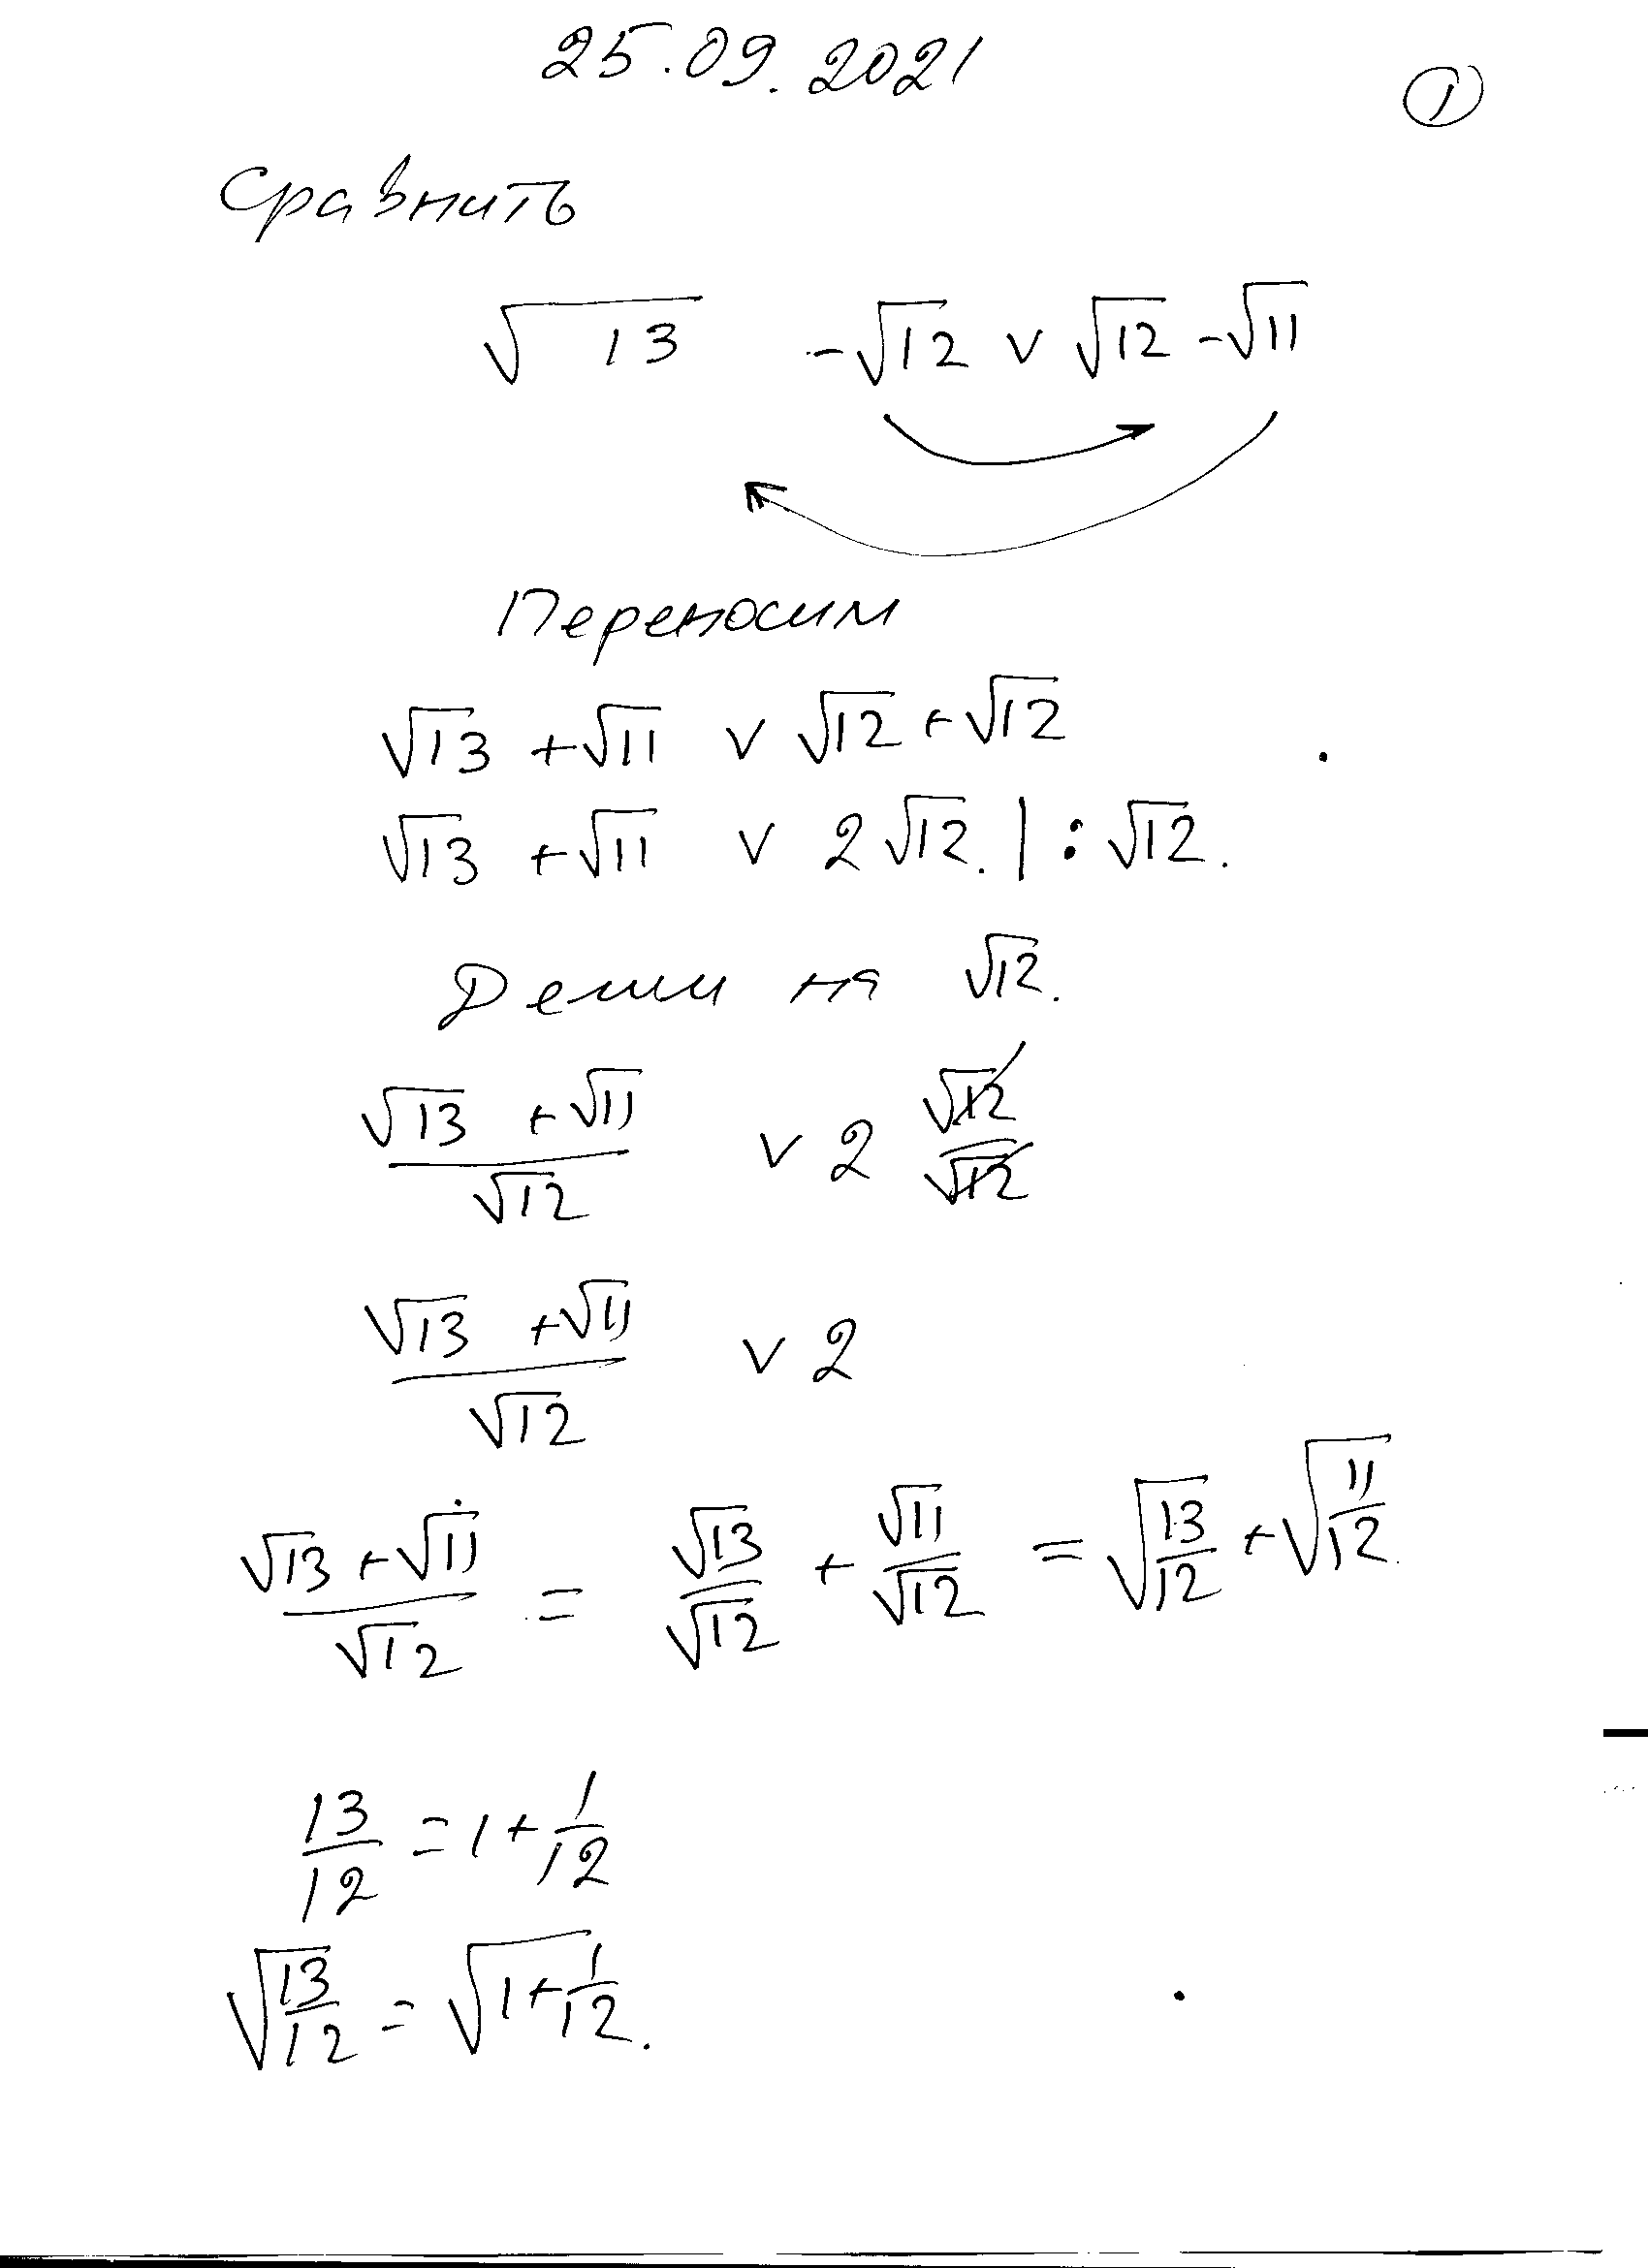 25.09.2021
①
Сравнить
√13 - √12 ∨ √12 - √11
Переносим
√13 + √11 ∨ √12 + √12
√13 + √11 ∨ 2√12. | : √12.
Делим на √12.
(√13 + √11)/√12 ∨ 2 √12/√12
(√13 + √11)/√12 ∨ 2
(√13 + √11)/√12 = √13/√12 + √11/√12 = √(13/12) + √(11/12)
13/12 = 1 + 1/12
√(13/12) = √(1 + 1/12).